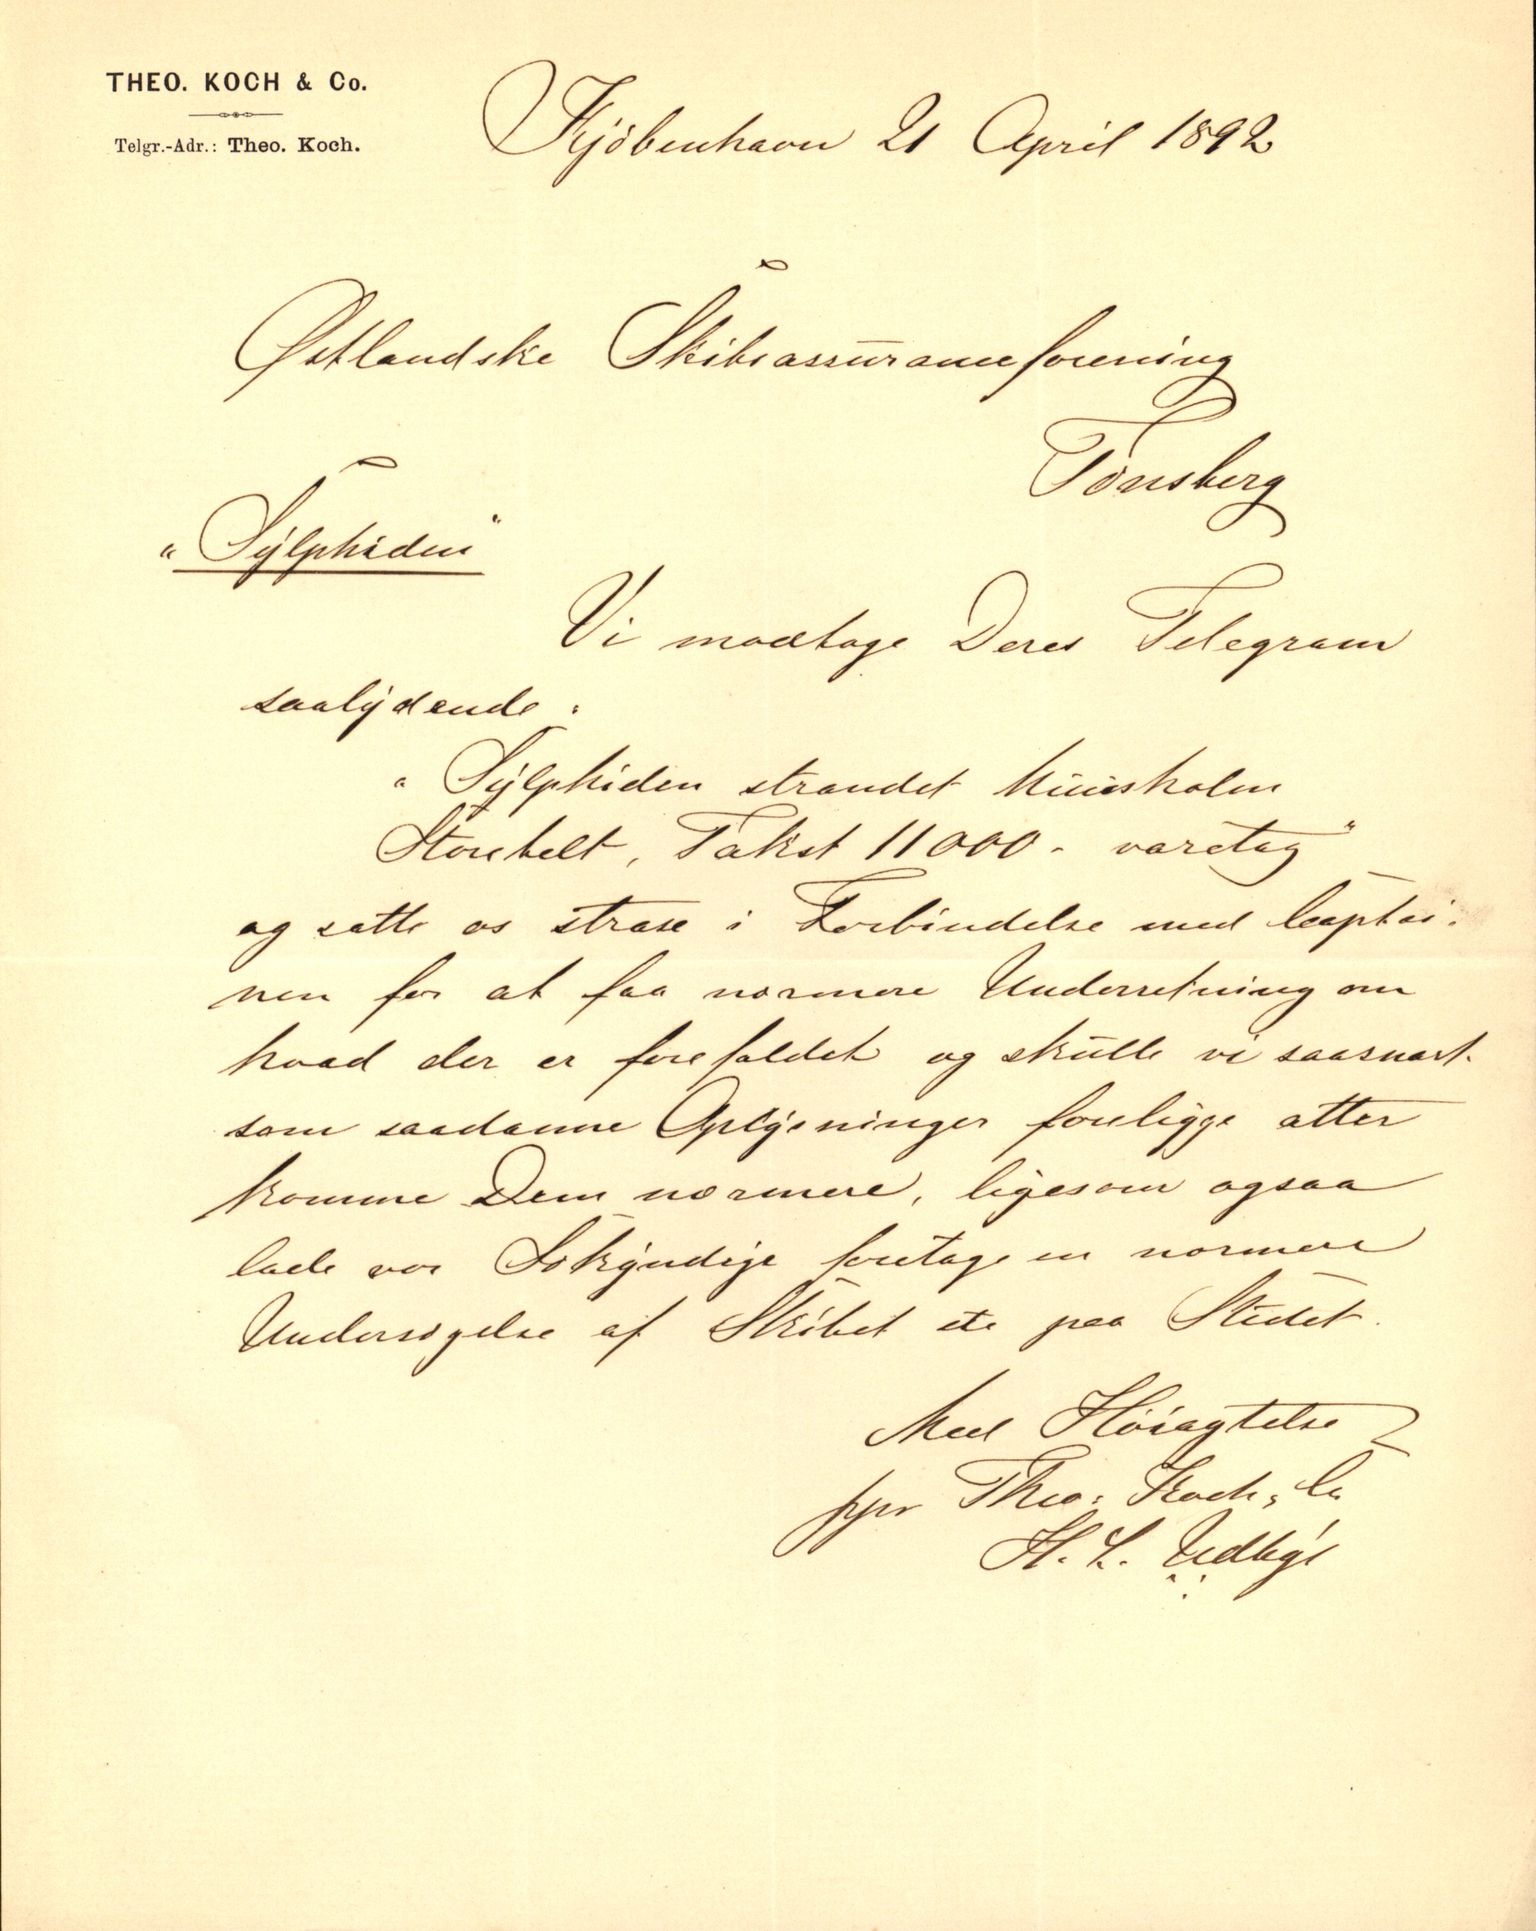 THEO. KOCH & Co.
Telgr.-Adr.: Theo. Koch.
Kjöbenhavn 21 April 1892
Østlandske Skibsassuranceforening
Tönsberg
"Sylphiden"
Vi modtage Deres Telegram
saalydende:
"Sylphiden strandet Muusholm
Storebelt, Takst 11000.- varetag"
og satte os strax i Forbindelse med Captai-
nen for at faa nærmere Underretning om
hvad der er forefaldet og skulle vi saasnart
som saadanne Oplysninger foreligge atter
komme Dem nærmere, ligesom ogsaa
lade vor Sökyndige foretage en nærmere
Undersögelse af Skibet etc paa Stedet.
Med Höiagtelse
ppr Theo. Koch & Co
H. L.